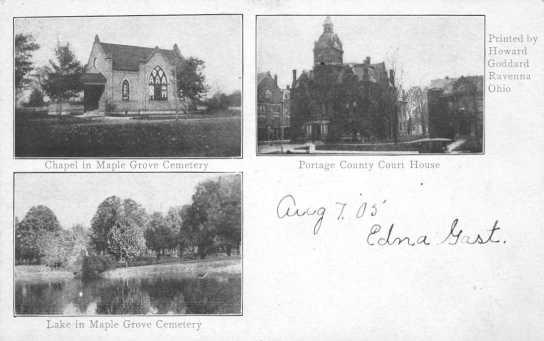 Printed by
Howard
Goddard
Ravenna
Ohio
Chapel in Maple Grove Cemetery
Portage County Court House
Aug 7. '05
Edna Gast.
Lake in Maple Grove Cemetery